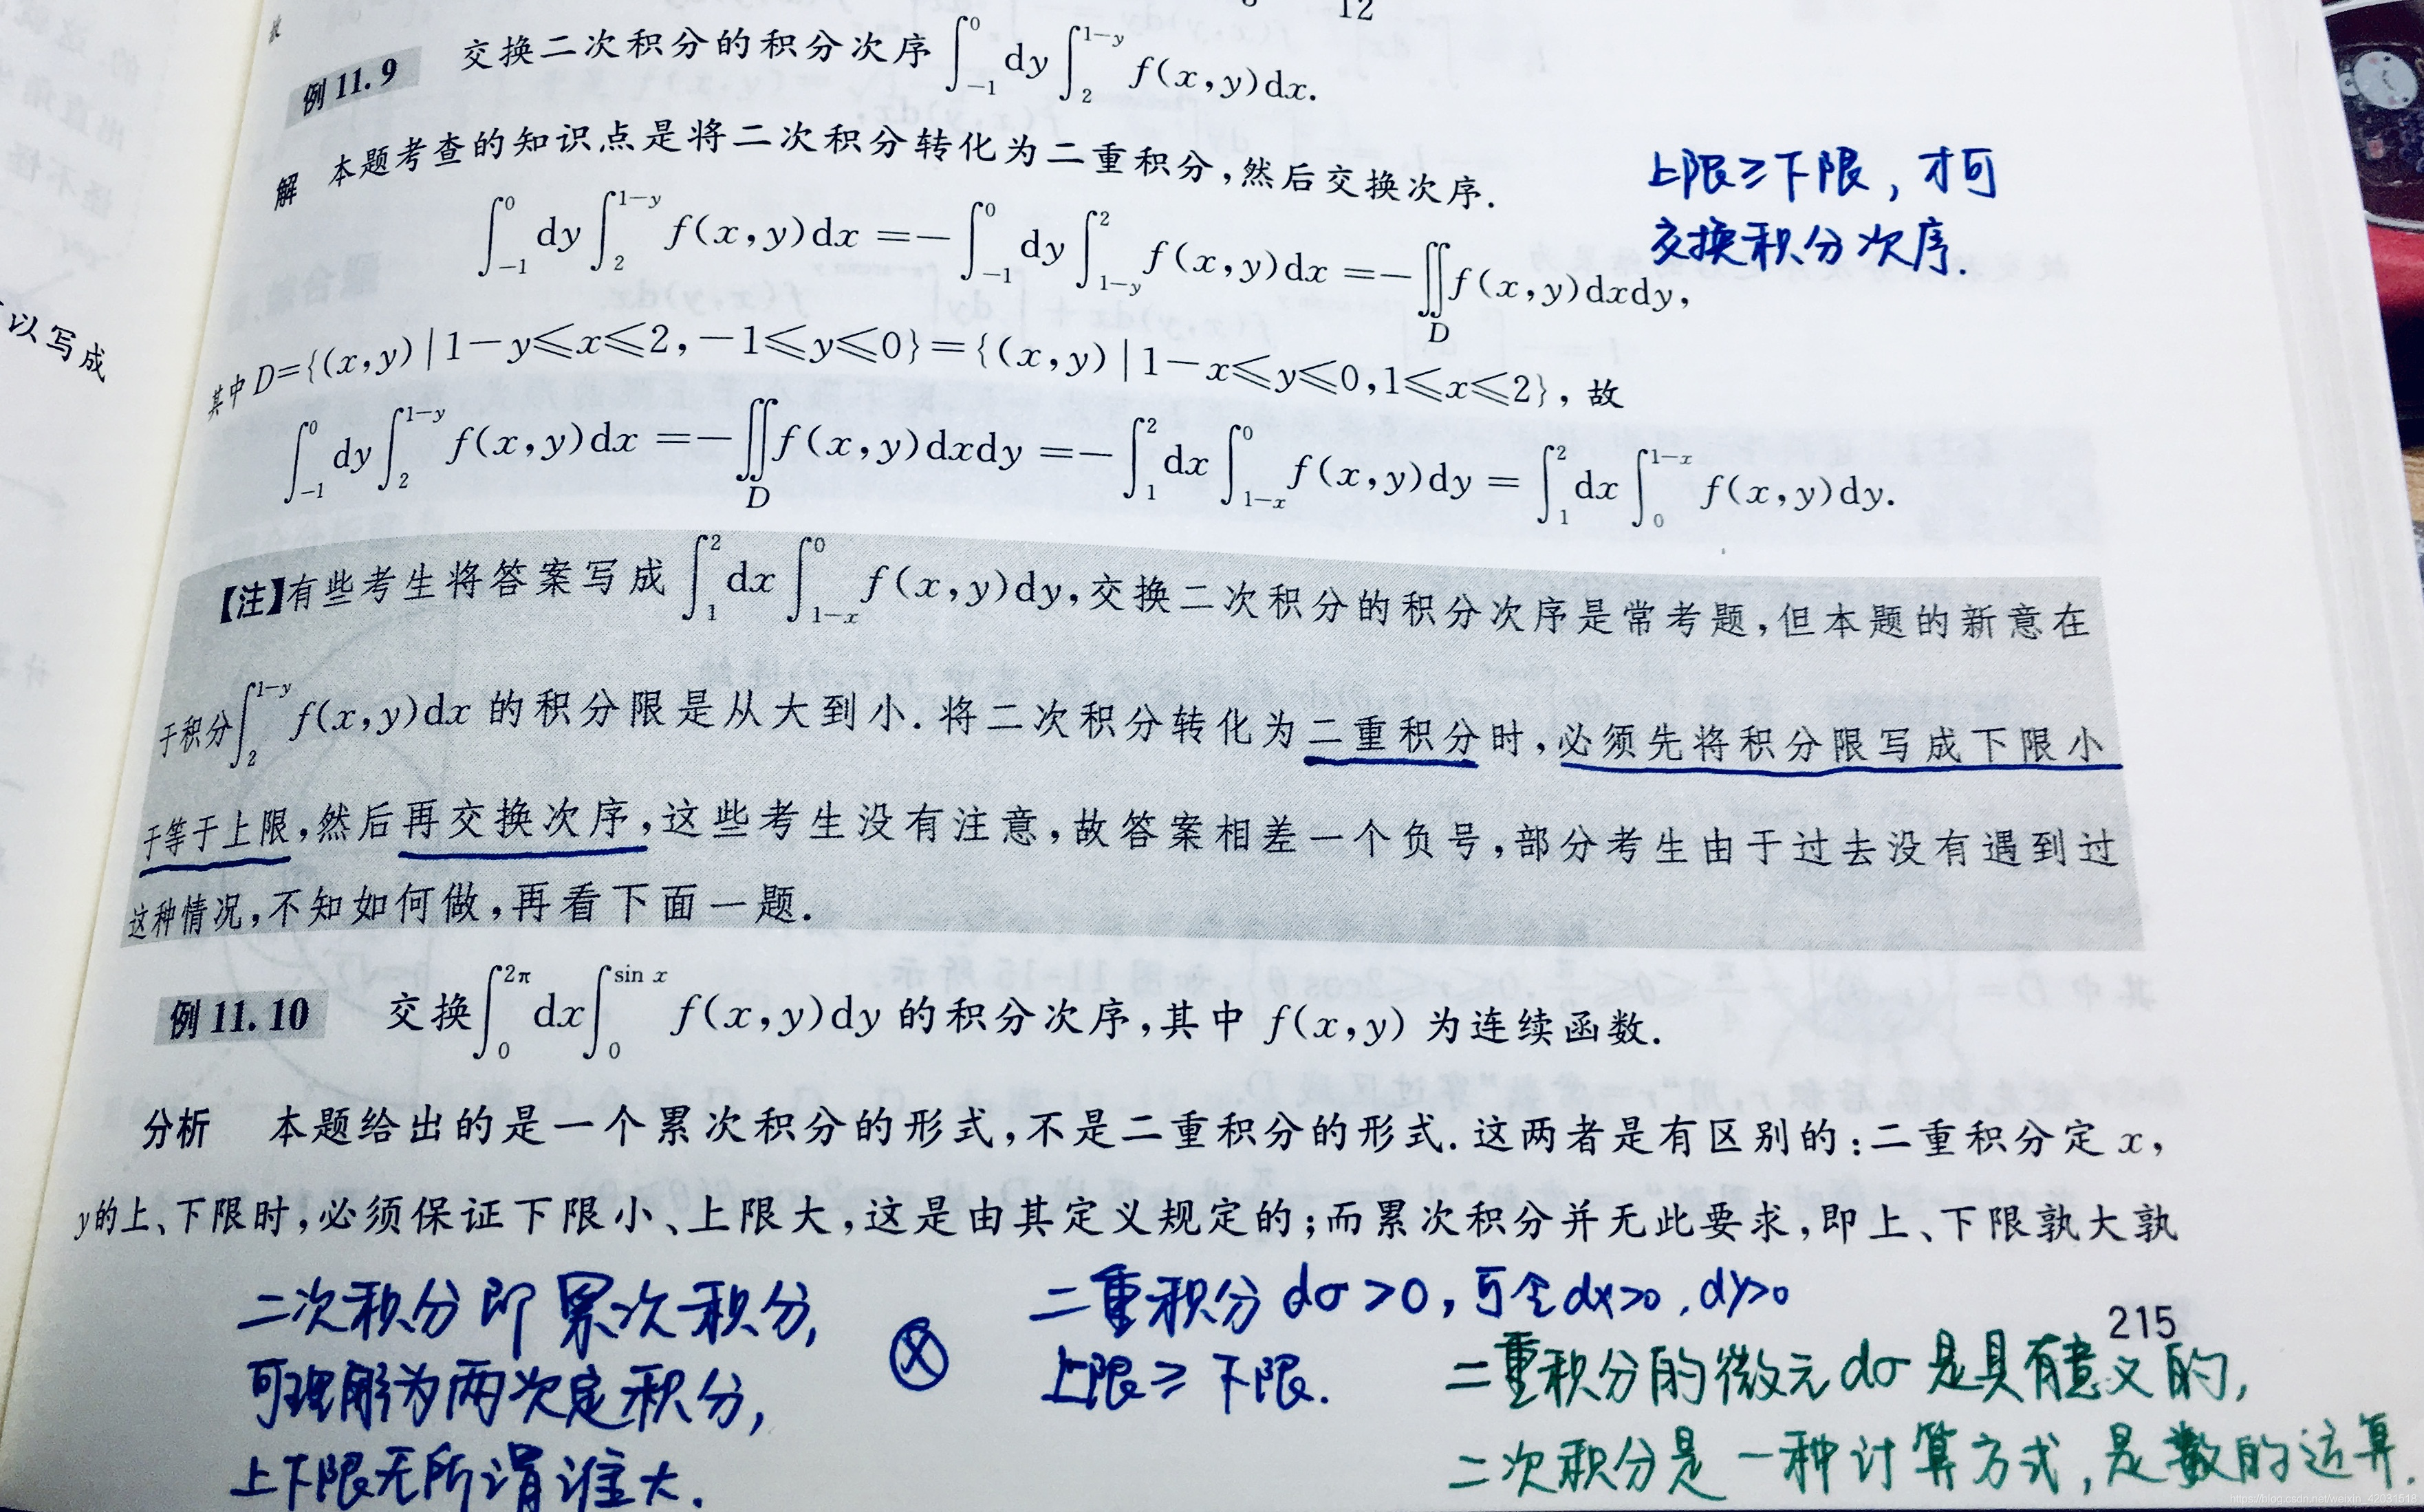 12
例 11.9 交换二次积分的积分次序 ∫_{-1}^{0} dy ∫_{2}^{1-y} f(x,y)dx.
解 本题考查的知识点是将二次积分转化为二重积分,然后交换次序.
∫_{-1}^{0} dy ∫_{2}^{1-y} f(x,y)dx = - ∫_{-1}^{0} dy ∫_{1-y}^{2} f(x,y)dx = - ∬_D f(x,y)dxdy,
上限≥下限, 才可
交换积分次序.
其中 D={(x,y)|1-y≤x≤2,-1≤y≤0}={(x,y)|1-x≤y≤0,1≤x≤2}, 故
∫_{-1}^{0} dy ∫_{2}^{1-y} f(x,y)dx = - ∬_D f(x,y)dxdy = - ∫_{1}^{2} dx ∫_{1-x}^{0} f(x,y)dy = ∫_{1}^{2} dx ∫_{0}^{1-x} f(x,y)dy.
【注】有些考生将答案写成 ∫_{1}^{2} dx ∫_{1-x}^{0} f(x,y)dy,交换二次积分的积分次序是常考题,但本题的新意在
于积分 ∫_{2}^{1-y} f(x,y)dx 的积分限是从大到小. 将二次积分转化为二重积分时,必须先将积分限写成下限小
于等于上限,然后再交换次序,这些考生没有注意,故答案相差一个负号,部分考生由于过去没有遇到过
这种情况,不知如何做,再看下面一题.
例 11.10 交换 ∫_{0}^{2π} dx ∫_{0}^{sin x} f(x,y)dy 的积分次序,其中 f(x,y) 为连续函数.
分析 本题给出的是一个累次积分的形式,不是二重积分的形式. 这两者是有区别的:二重积分定 x,
y的上、下限时,必须保证下限小、上限大,这是由其定义规定的;而累次积分并无此要求,即上、下限孰大孰
215
二次积分即 累次积分,
可理解为两次定积分,
上下限无所谓谁大.
二重积分 dσ>0, dx>0, dy>0
上限≥下限.
二重积分的微元 dσ 是具有意义的,
二次积分是一种计算方式, 是数的运算.
以写成
https://blog.csdn.net/weixin_42031518